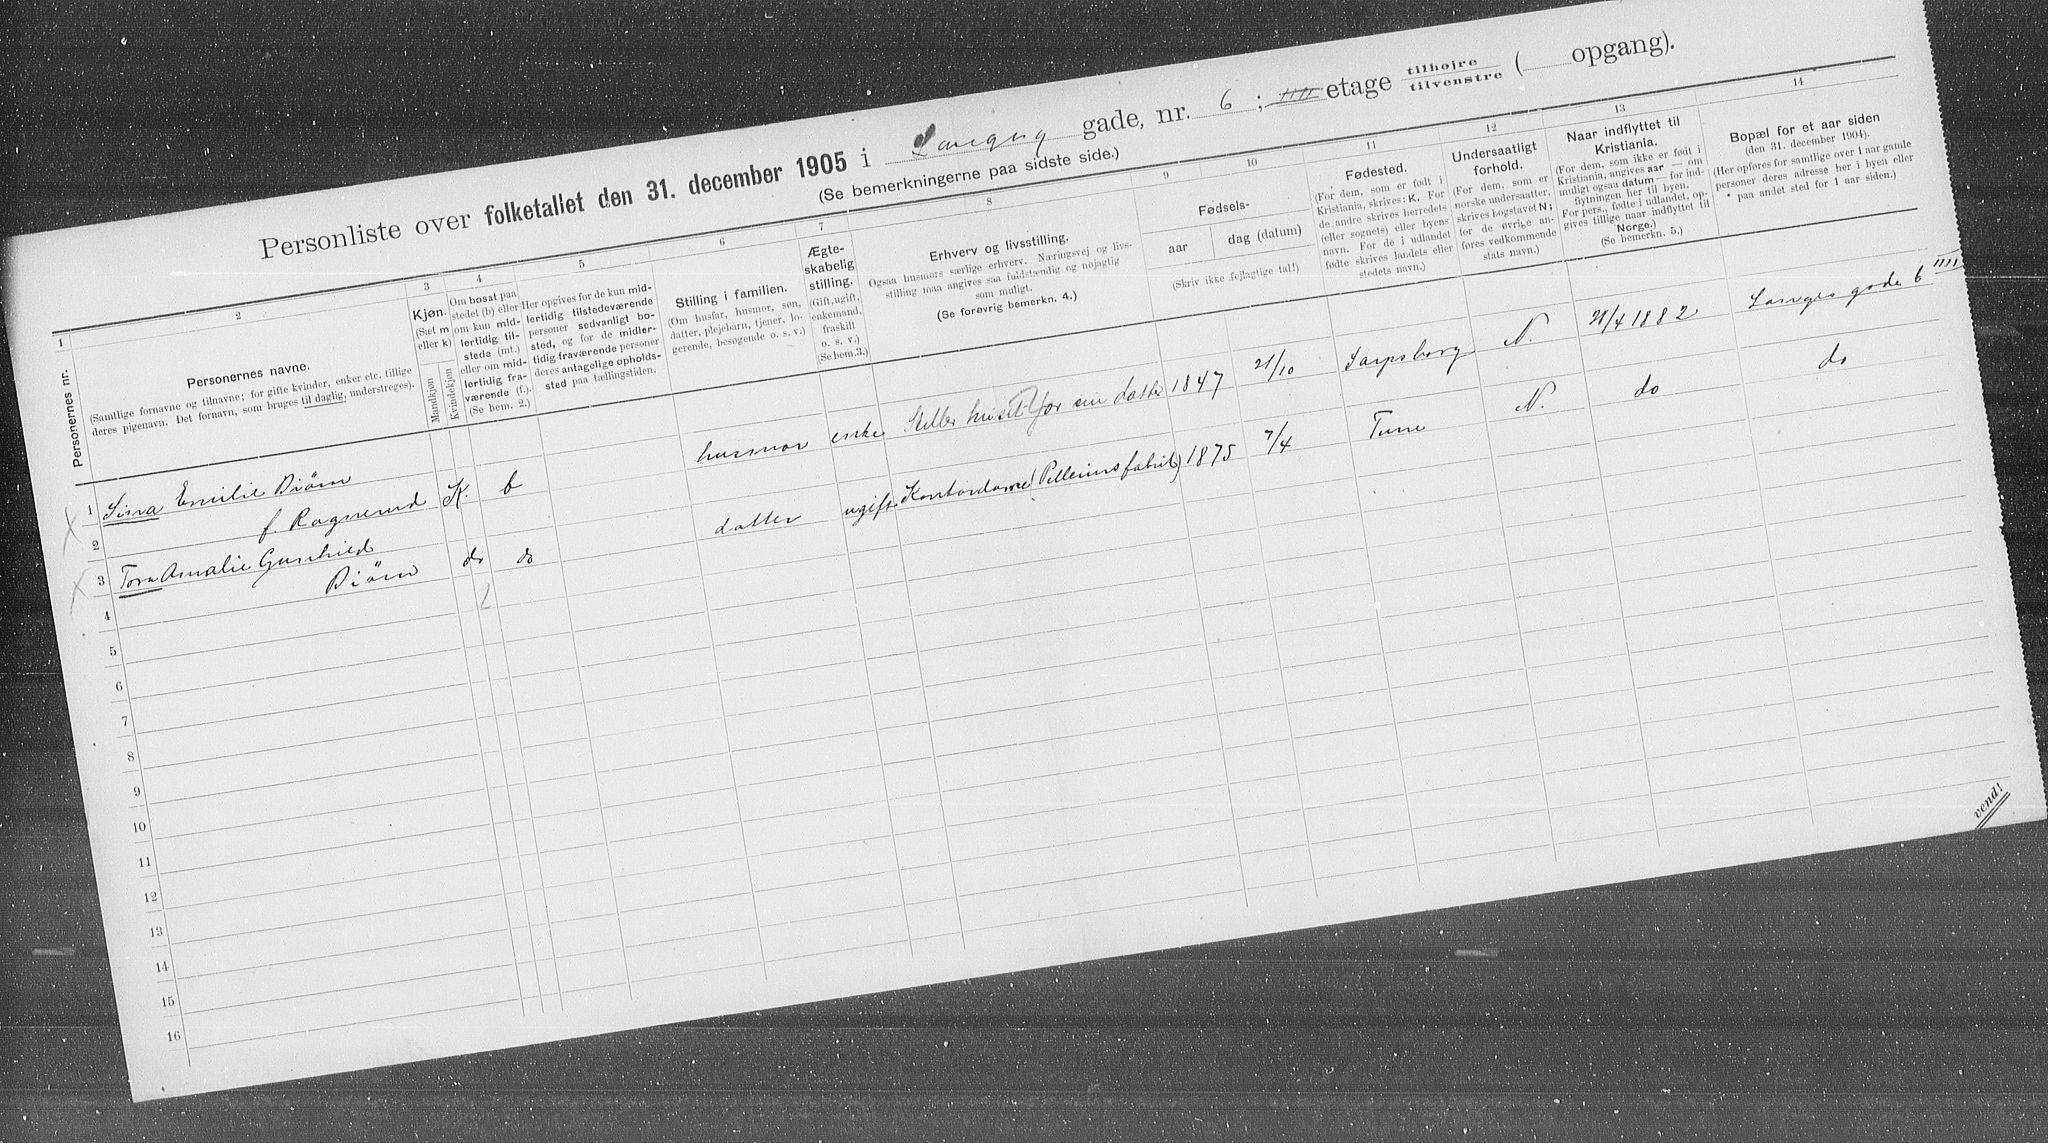 Personliste over folketallet den 31. december 1905 i Langes gade, nr. 6 ; IIII etage tilhøjre tilvenstre ( opgang).
(Se bemerkningerne paa sidste side.)
1 2 3 4 5 6 7 8 9 10 11 12 13 14
Personernes nr.
Personernes navne.
(Samtlige fornavne og tilnavne; for gifte kvinder, enker etc. tillige
deres pigenavn. Det fornavn, som bruges til daglig, understreges).
Kjøn.
(Sæt m
eller k)
Mandkjøn
Kvindekjøn
Om bosat paa
stedet (b) eller
om kun mid-
lertidig til-
stede (mt.)
eller om mid-
lertidig fra-
værende (f.).
(Se bem. 2.)
Her opgives for de kun mid-
lertidig tilstedeværende
personer sedvanligt bo-
sted, og for de midler-
tidig fraværende personer
deres antagelige opholds-
sted paa tællingstiden.
Stilling i familien.
(Om husfar, husmor, søn,
datter, plejebarn, tjener, lo-
gerende, besøgende o. s. v.)
Ægte-
skabelig
stilling.
(Gift, ugift,
enkemand,
fraskilt
o. s. v.)
(Se bem.3.)
Erhverv og livsstilling.
Ogsaa husmors særlige erhverv. Næringsvej og livs-
stilling maa angives saa fuldstændig og nøjagtig
som muligt.
(Se forøvrig bemerkn. 4.)
Fødsels-
aar
dag (datum)
(Skriv ikke fejlagtige tal!)
Fødested.
(For dem, som er født i
Kristiania, skrives: K. For
de andre skrives herredets
(eller sognets) eller byens
navn. For de i udlandet
fødte skrives landets eller
stedets navn.)
Undersaatligt
forhold.
(For dem, som er
norske undersaatter,
skrives bogstavet N;
for de øvrige an-
føres vedkommende
stats navn.)
Naar indflyttet til
Kristiania.
(For dem, som ikke er født i
Kristiania, angives aar — om
muligt ogsaa datum — for ind-
flytningen her til byen.
For pers., fødte i udlandet, op-
gives tillige naar indflyttet til
Norge.)
(Se bemerkn. 5.)
Bopæl for et aar siden
(den 31. december 1904).
(Her opføres for samtlige over 1 aar gamle
personer deres adresse her i byen eller
paa andet sted for 1 aar siden.)
1 Lina Emilie Biørn K. b husmor enke steller huset for sin datter 1847 21/10 Sarpsborg N. 21/4 1882 Langes gade 6 IIII
2 f. Ragnerud
3 Tora Amalie Gunhild do do datter ugift Kontordame (Pellerins fabrik) 1875 7/4 Tune N. do do
Biørn
4 2
5
6
7
8
9
10
11
12
13
14
15
16
vend!